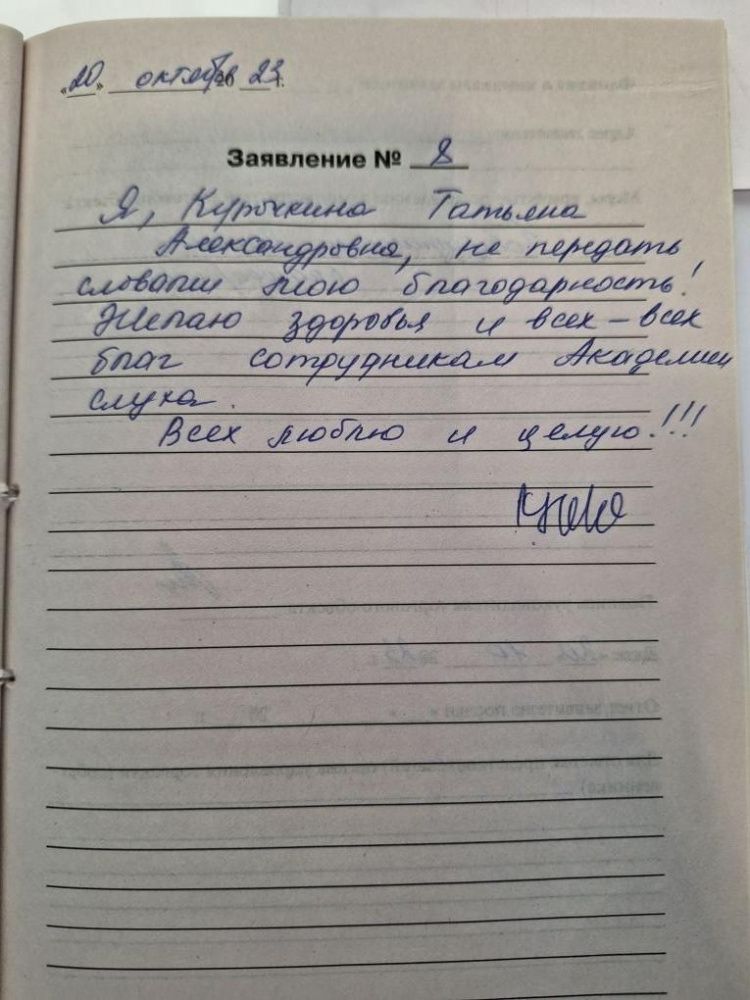 «20» октября 2023 г.
Заявление № 8
Я, Курочкина Татьяна
Александровна, не передать
словами мою благодарность!
Желаю здоровья и всех-всех
благ сотрудникам Академии
слуха.
Всех люблю и целую!!!